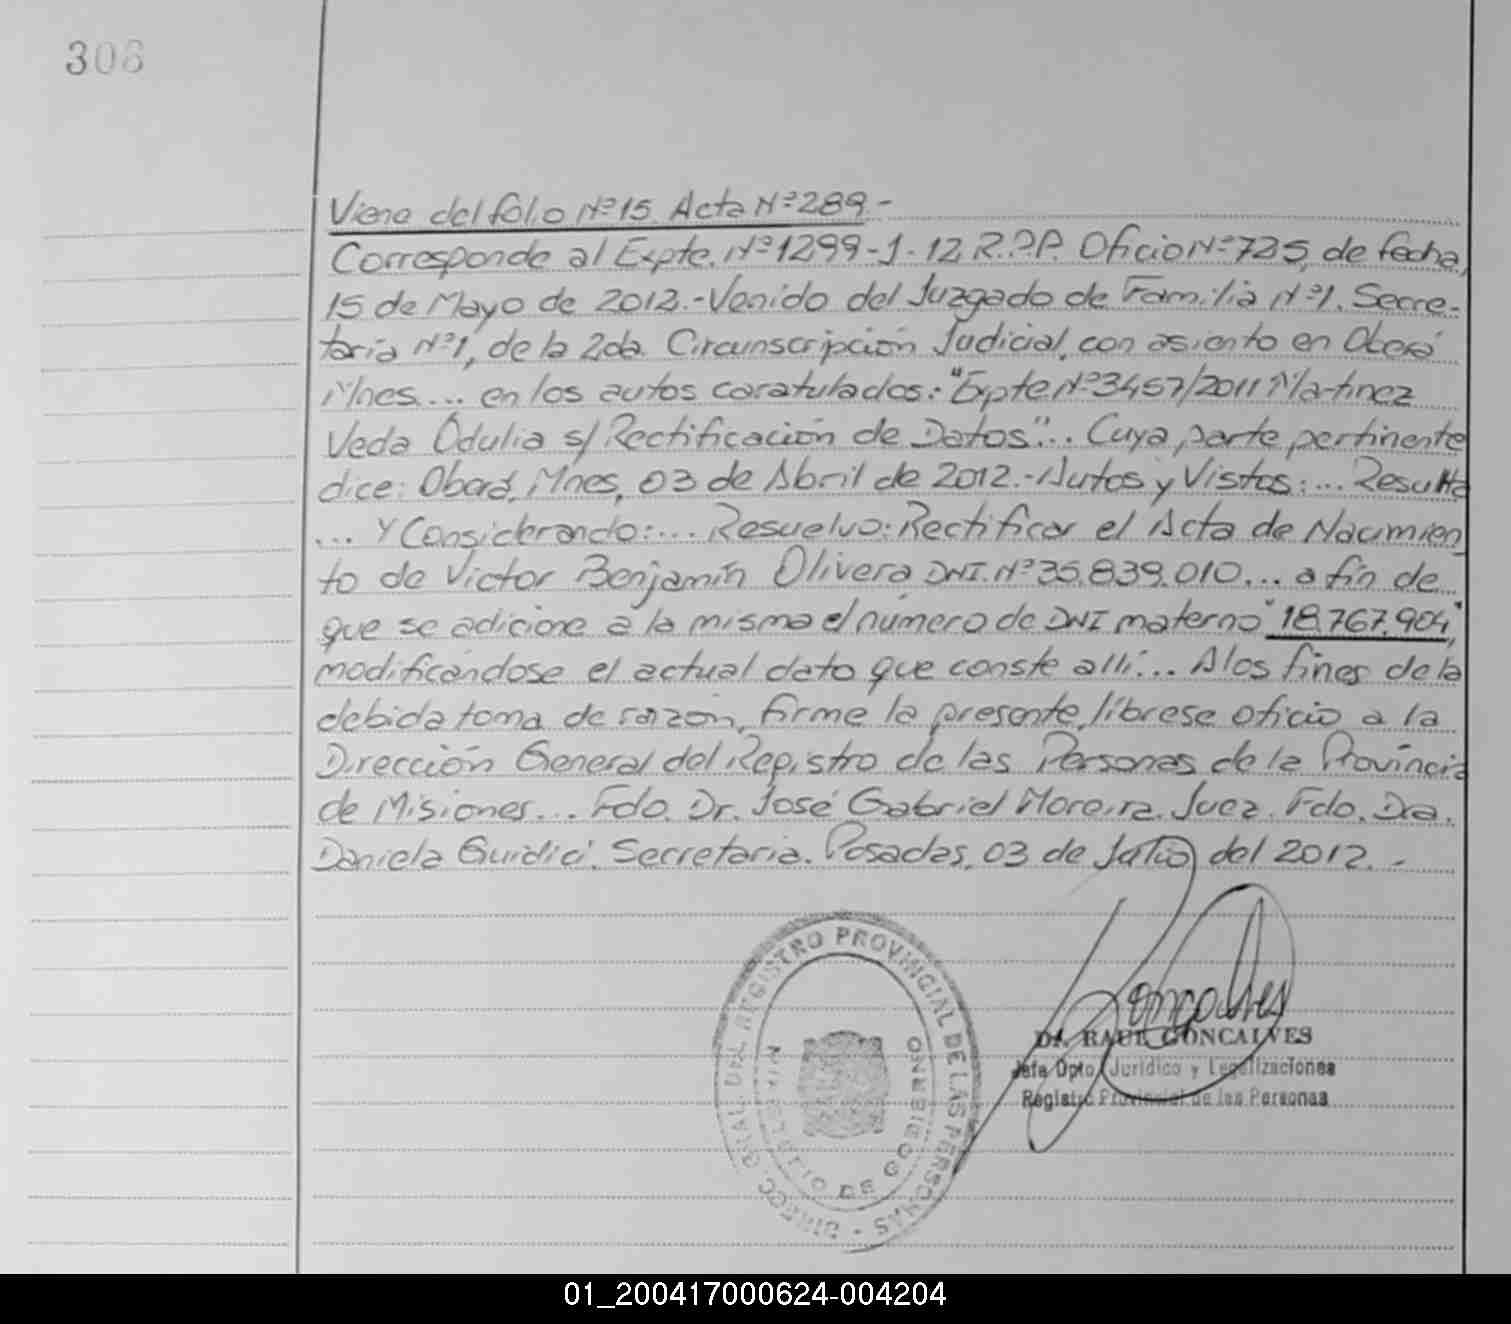 308
Viene del folio Nº 15. Acta Nº 289.-
Corresponde al Expte. Nº 1299-J-12 R.P.P. Oficio Nº 725, de fecha,
15 de Mayo de 2012.- Venido del Juzgado de Familia Nº 1. Secre-
taria Nº 1, de la 2da. Circunscripción Judicial, con asiento en Oberá
Mnes.... en los autos caratulados: "Expte Nº 3457/2011 Martinez
Veda Odulia s/ Rectificación de Datos"... Cuya parte pertinente
dice: Oberá, Mnes, 03 de Abril de 2012.- Autos y Vistos:... Resulta
... Y Considerando:... Resuelvo: Rectificar el Acta de Nacimien
to de Victor Benjamín Olivera DNI. Nº 35.839.010... a fin de
que se adicione a la misma el número de DNI materno "18.767.904",
modificándose el actual dato que conste allí... A los fines de la
debida toma de razón, firme la presente, líbrese oficio a la
Dirección General del Registro de las Personas de la Provincia
de Misiones... Fdo. Dr. José Gabriel Moreira. Juez. Fdo. Dra.
Daniela Guidici. Secretaria. Posadas, 03 de Julio del 2012.-
DIRECC. GRAL. DEL REGISTRO PROVINCIAL DE LAS PERSONAS -
MINISTERIO DE GOBIERNO
Goncalves
Dr. RAUL GONCALVES
Jefe Dpto. Jurídico y Legalizaciones
Registro Provincial de las Personas
01_200417000624-004204